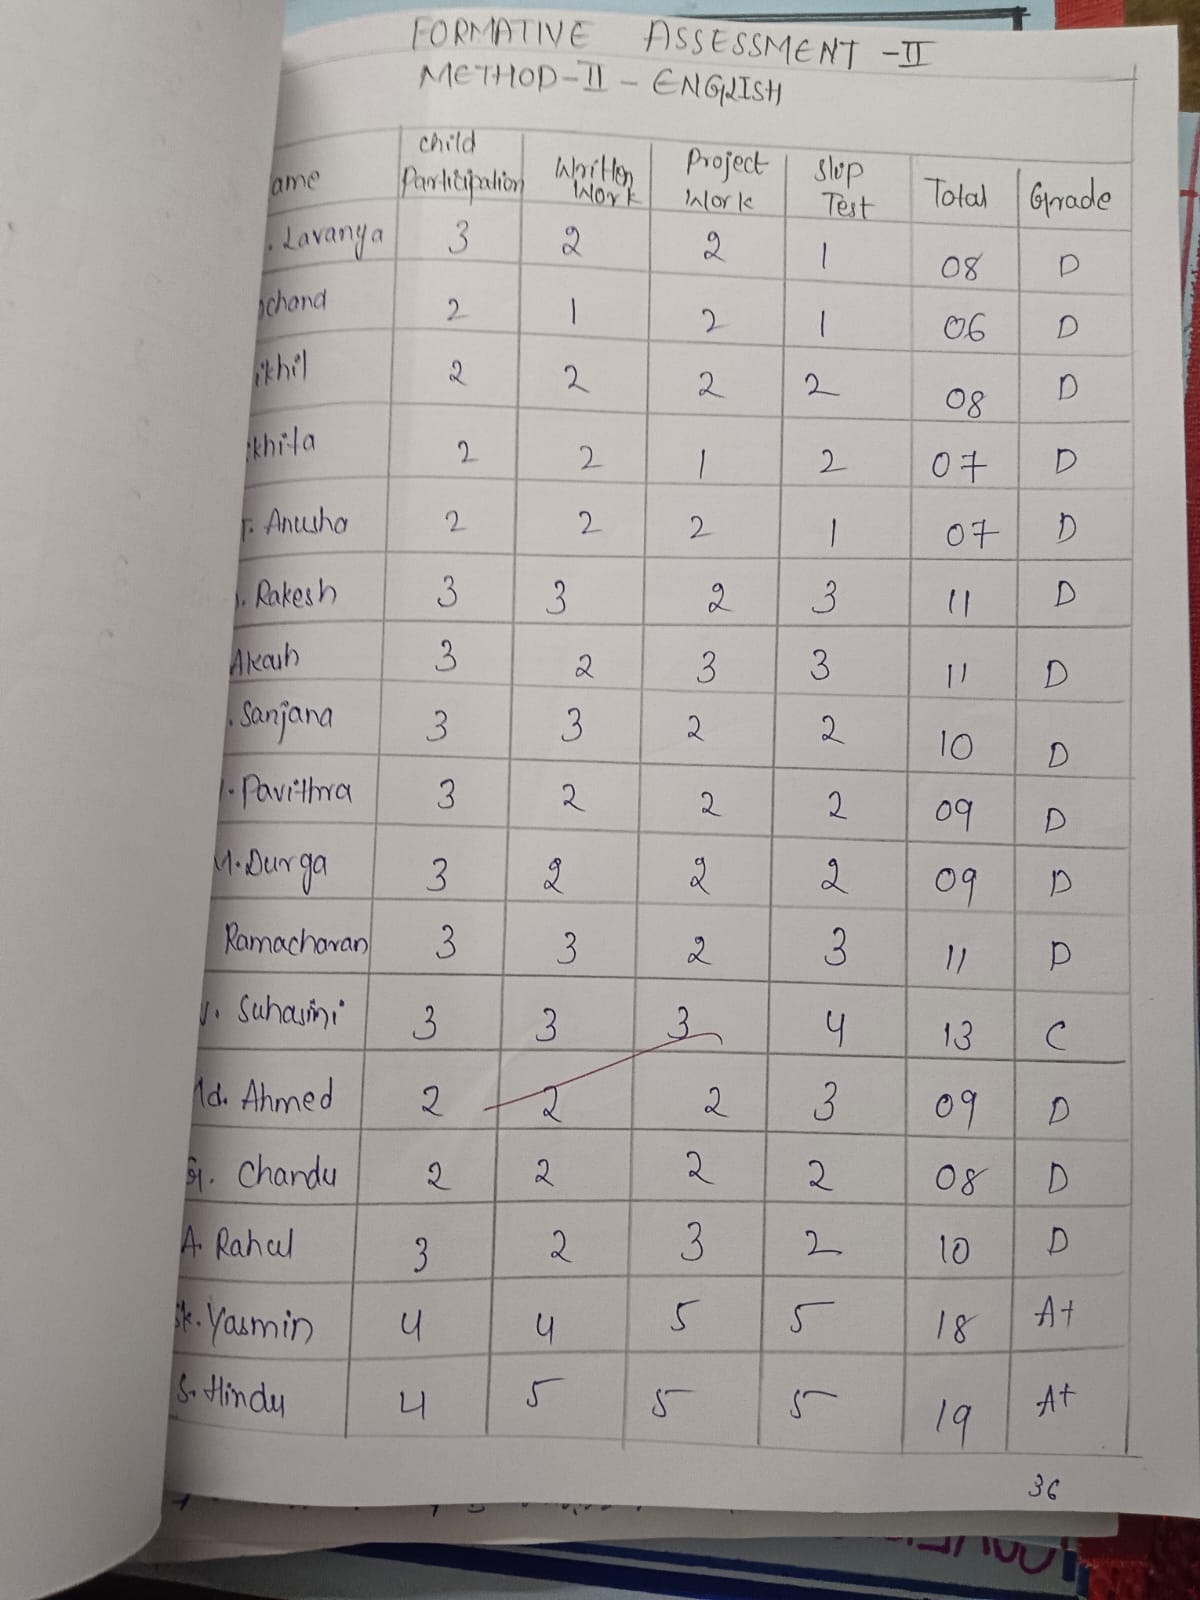 FORMATIVE ASSESSMENT -II
METHOD-II - ENGLISH
ame child Participation Written Work Project Work Slip Test Total Grade
. Lavanya 3 2 2 1 08 D
chand 2 1 2 1 06 D
ikhil 2 2 2 2 08 D
khita 2 2 1 2 07 D
. Anusha 2 2 2 1 07 D
. Rakesh 3 3 2 3 11 D
Akash 3 2 3 3 11 D
. Sanjana 3 3 2 2 10 D
. Pavithra 3 2 2 2 09 D
M. Durga 3 2 2 2 09 D
Ramacharan 3 3 2 3 11 D
. Suhasini 3 3 3 4 13 C
Md. Ahmed 2 2 2 3 09 D
G. Chandu 2 2 2 2 08 D
A. Rahul 3 2 3 2 10 D
Sk. Yasmin 4 4 5 5 18 A+
S. Hindu 4 5 5 5 19 A+
36